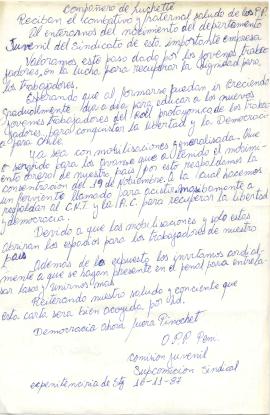 Compañero de Luchette
Reciban el combativo y fraternal saludo de los P.P.
Al enterarnos del nacimiento del departamento
Juvenil del Sindicato de esta importante empresa
Valoramos este paso dado por los jovenes traba-
jadores, en la lucha para recuperar la dignidad para
los trabajadores.
Esperando que al formarse puedan ir creciendo
gradualmente dia a dia, para educar a los nuevos
jovenes trabajadores del Roll protagonico de los traba-
jadores, para conquistar la libertad y la Democracia
para Chile.
Ya sea con mobilisaciones generalisada. Que
o surgido para los avanse que a tenido el mobimi-
ento obrero de nuestro pais, por esto respaldamos la
consentracion del 19 de Noviembre. a la cual hacemos
un ferviente llamado para acistir masibamente a
respaldar al C.N.T y la A.C. para recuperar la libertad
y democracia.
Devido a que las mobilisaciones y solo estas
abriran los espacios para los trabajadores de nuestro
pais
Ademas de lo expuesto los invitamos cordial-
mente a que se hagan presente en el penal para entrela-
sar lasos y unirnos mas
Reiterando nuestro saludo y conciente que
esta carta sera bien acojida por Ud.
Democracia ahora fuera Pinochet
O.P.P Pen.
Comision Juvenil
Subcomicion Sindical
expenitenciaria de Stg 16-11-87